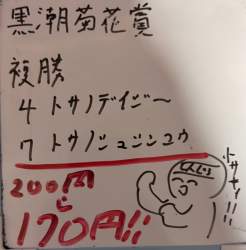 黒潮菊花賞
複勝
4 トサノデイジー
7 トサノシュジンコウ
200円
を
170円!!
トサヤ!!!